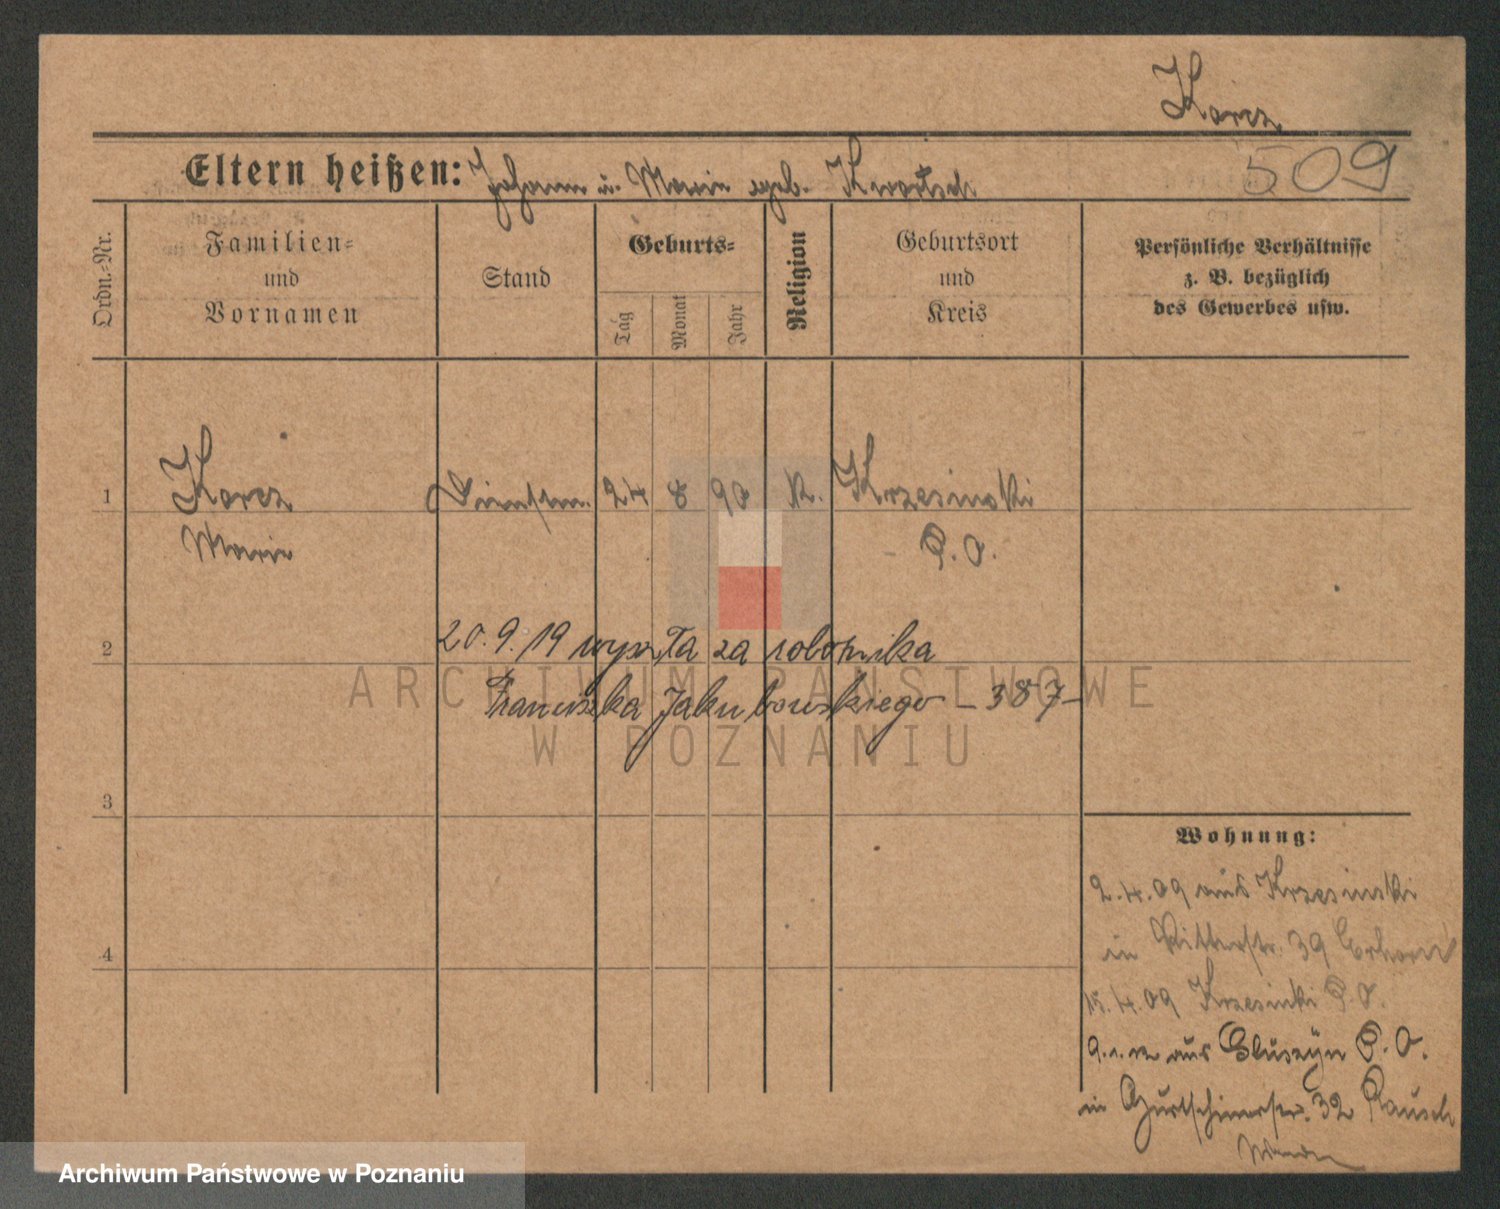 Korcz
Eltern heißen: Johann u. Marie geb. Kwartsch
509
Ordn.-Nr.
Familien-
und
Vornamen
Stand
Geburts-
Tag
Monat
Jahr
Religion
Geburtsort
und
Kreis
Persönliche Verhältnisse
z. B. bezüglich
des Gewerbes usw.
1
Korcz
Marie
Dienstm. 24 8 90 k. Krzesinski
P. O.
2
20.9.19 wyszła za robotnika
Franciszka Jakubowskiego - 387-
3
4
Wohnung:
2.4.09 aus Krzesinski
in Ritterstr. 39
15.4.09 Krzesinki P. O.
9.1.12 aus Gluszyn P. O.
in Gurtschinerstr. 32 Rausch
ARCHIWUM PAŃSTWOWE
W POZNANIU
Archiwum Państwowe w Poznaniu